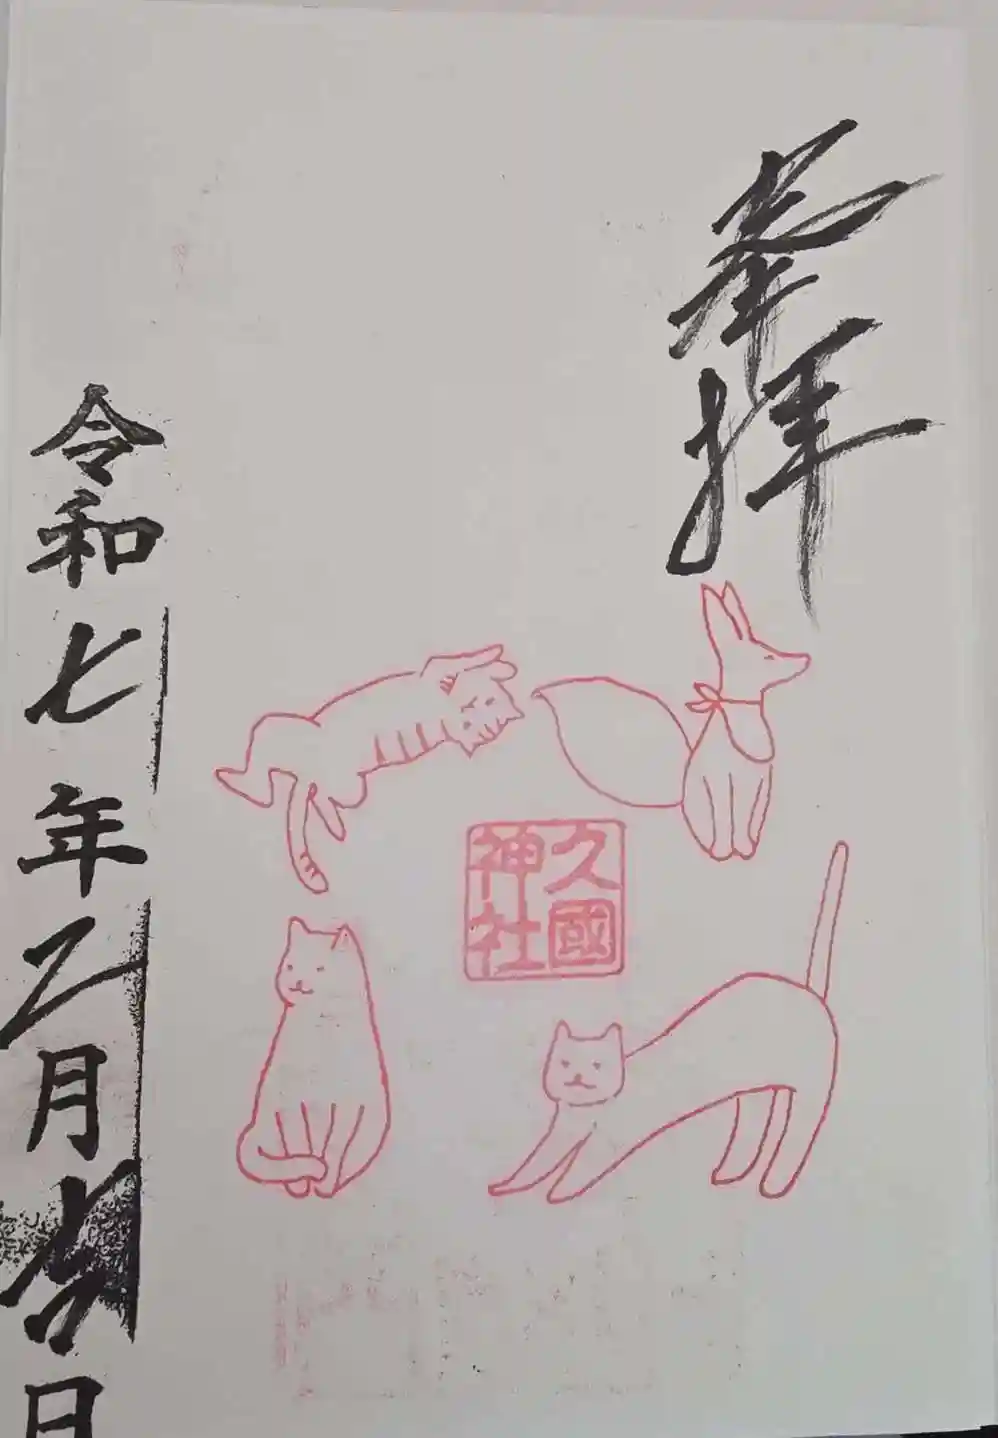 奉拝
久國
神社
令和七年二月 日